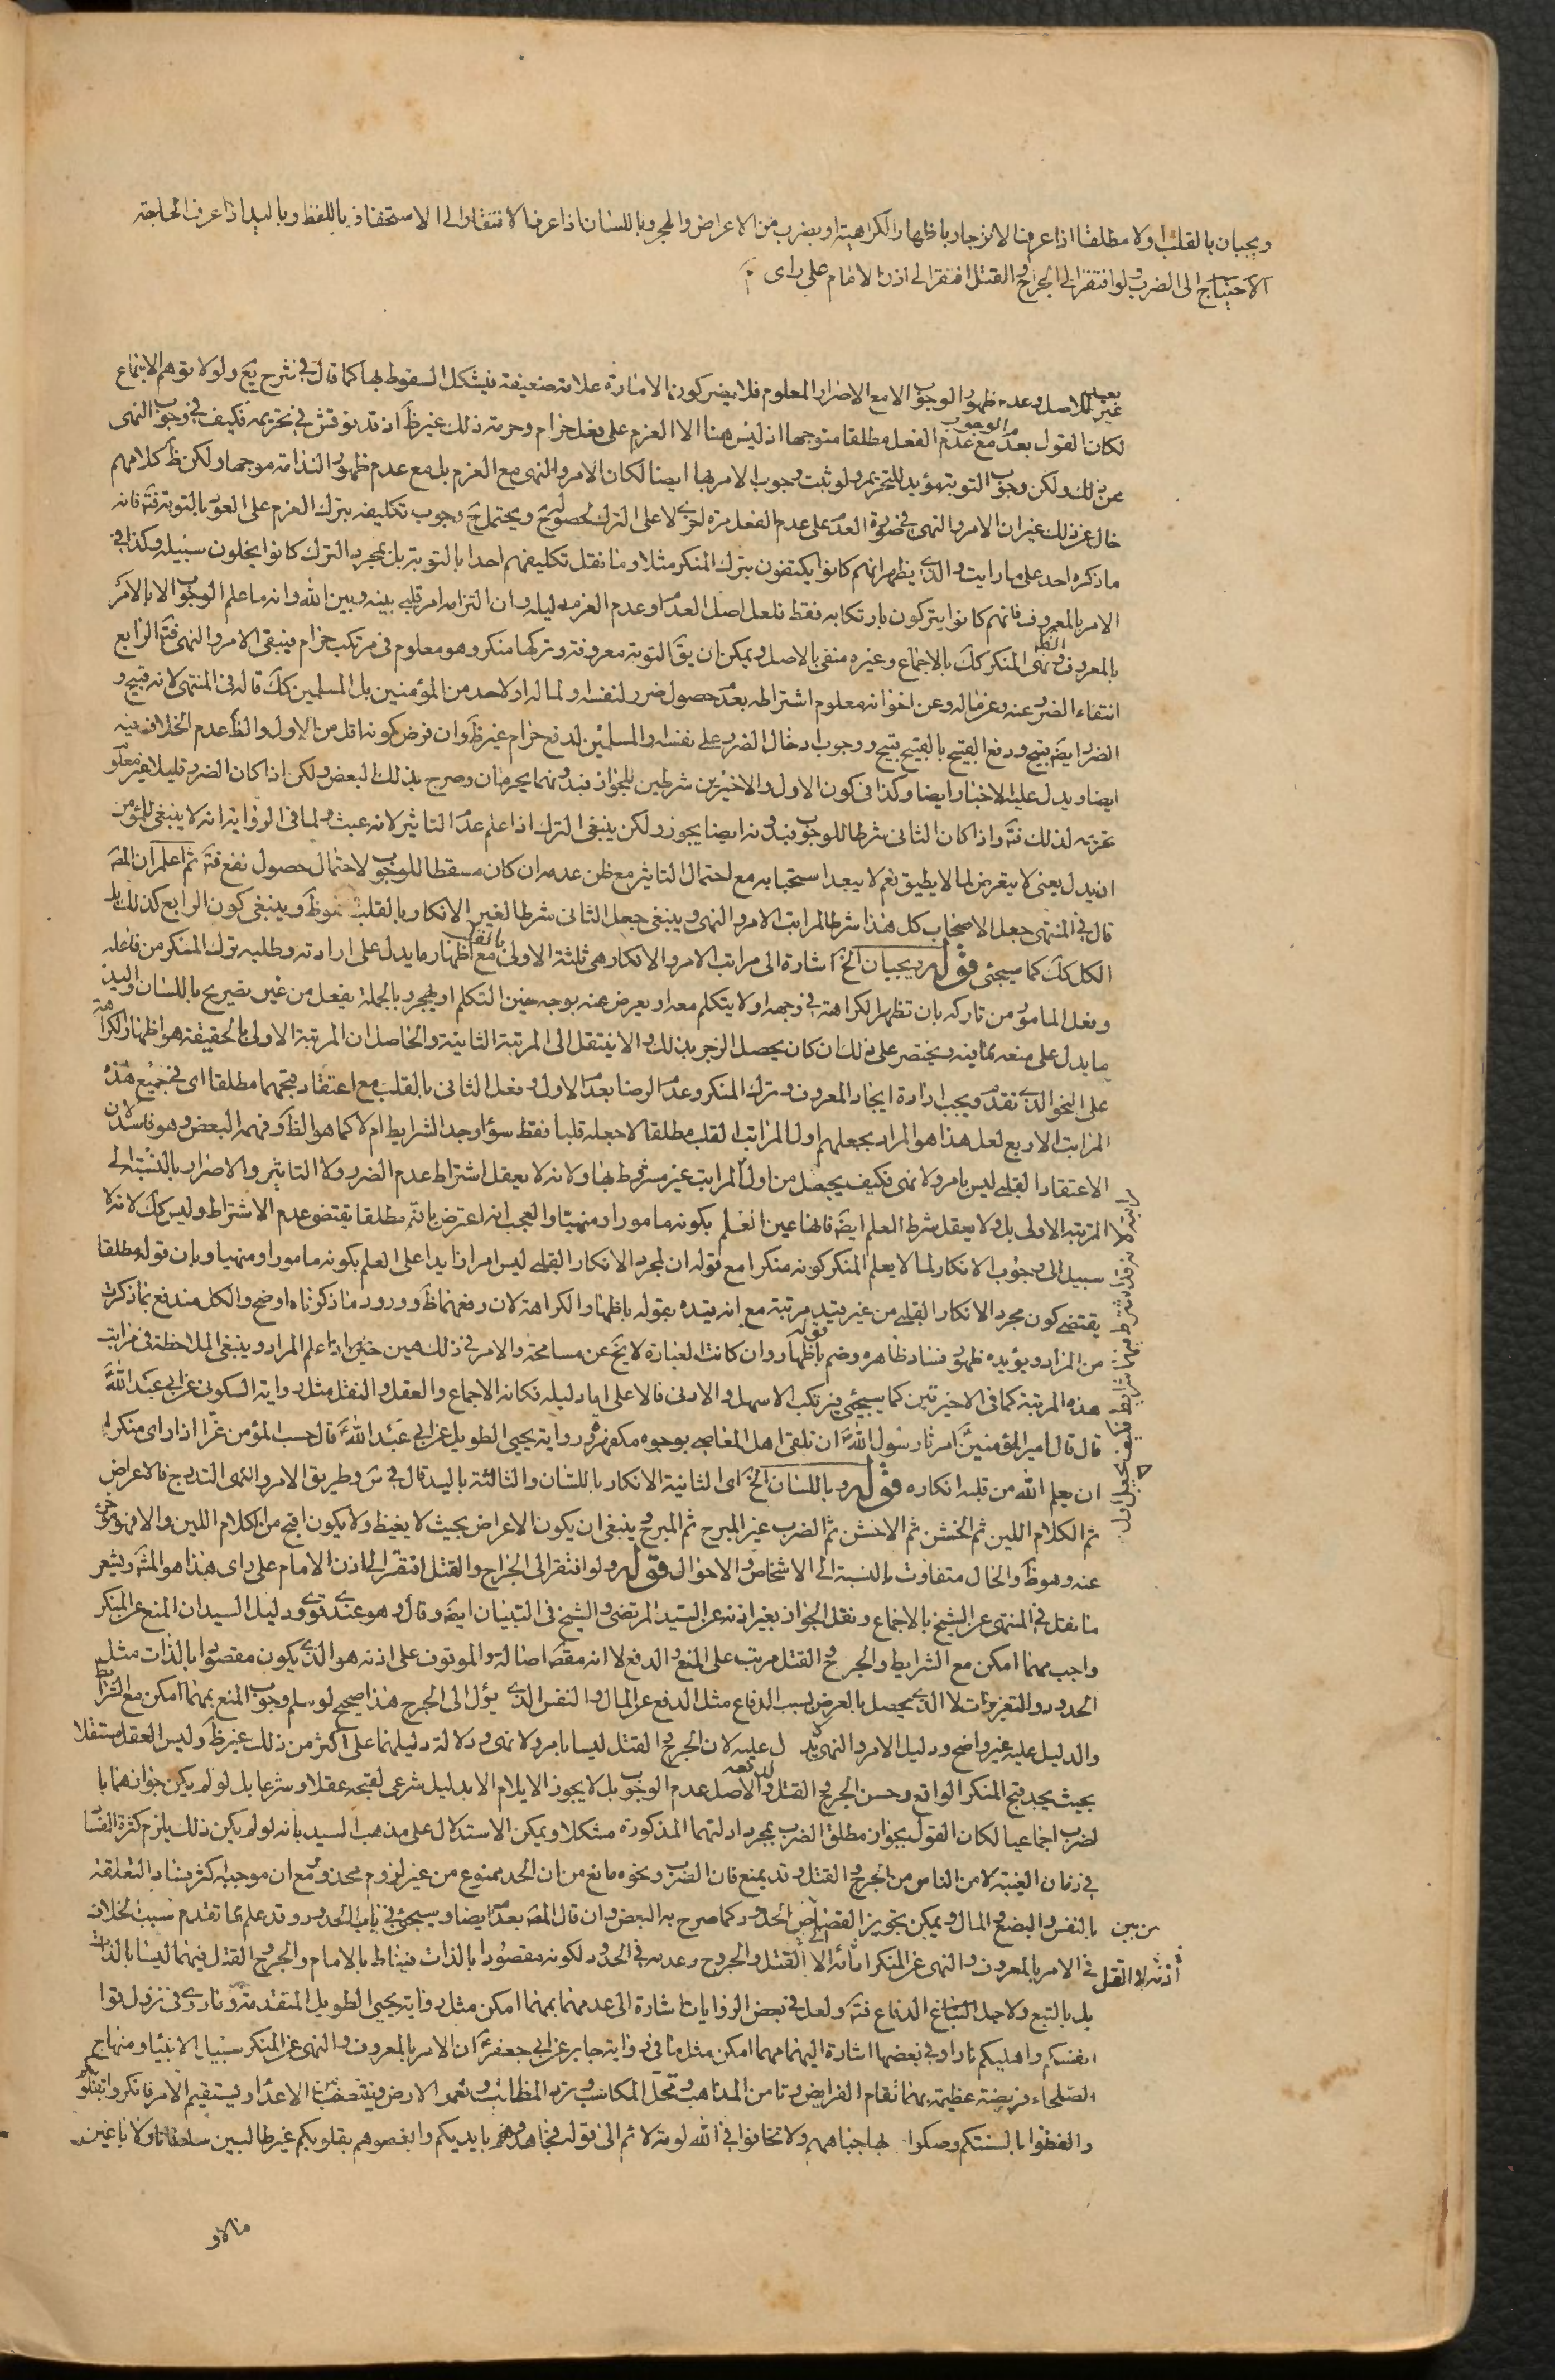 ويجبان بالقلب اولا مطلقا اذا عرف الانزجار باظهار الكراهية او بضرب من الاعراض والهجر وباللسان اذا عرف الافتقار الى الاستخفاف باللفظ وباليد اذا عرف الحاجة
الاحتياج الى الضرب ولو افتقر الى الجراح والقتل افتقر الى اذن الامام على راى
للاصل وعدم ظهور الوجوب الا مع الاصرار المعلوم فلا يضر كون الامارة علامة ضعيفة فيشكل السقوط بها كما قال في شرح يع ولولا توهم الاجماع
لكان القول بعدم الوجوب مع عدم الفعل مطلقا متوجها اذ ليس هنا الا العزم على فعل حرام وحرمة ذلك غير ظ اذ قد نوقش في تحريمه فكيف في وجوب النهى
عن ذلك ولكن وجوب التوبة مؤيد للتحريم ولو ثبت وجوب الامر بها ايضا لكان الامر والنهى مع العزم بل مع عدم ظهور الندامة موجها ولكن ظ كلامهم
خال عن ذلك غير ان الامر والنهى في صورة العدم على عدم الفعل مرة اخرى لا على الترك لحصوله ح ويحتمل ح وجوب تكليفه بترك العزم على العود بالتوبة فت فانه
ما ذكره احد على ما رايت والذى يظهر انهم كانوا يكتفون بترك المنكر مثلا وما نقل تكليفهم احدا بالتوبة بل بمجرد الترك كانوا يخلون سبيله وكذا في
الامر بالمعروف فانهم كانوا يتركون بارتكابه فقط فلعل اصل العدم وعدم العزم دليله وان التزامه امر قلبى بينه وبين الله وانه ما علم الوجوب الا بالامر
بالمعروف ونهى المنكر كك بالاجماع وغيره منفى بالاصل ويمكن ان يق التوبة معروفة وتركها منكر وهو معلوم في مرتكب حرام فينبغى الامر والنهى فت الرابع
انتفاء الضرر عنه وعن ماله وعن اخوانه معلوم اشتراطه بعدم حصول ضرر لنفسه ولماله او لاحد من المؤمنين بل المسلمين كك قاله في المنتهى لانه قبيح و
الضرر ايضا قبيح ودفع القبيح بالقبيح قبيح ووجوب ادخال الضرر على نفسه والمسلمين لدفع حرام غير ظ وان فرض كونه اقل من الاول والظ عدم الخلاف فيه
ايضا ويدل عليه الاخبار ايضا وكذا في كون الاول والاخيرين شرطين للجواز فبدونهما يحرمان وصرح بذلك البعض ولكن اذا كان الضرر قليلا غير معلوم
تحريمه لذلك فت واذا كان الثانى شرطا للوجوب فبدونه ايضا يجوز ولكن ينبغى الترك اذا علم عدم التاثير لانه عبث ولما في الرواية انه لا ينبغى للمؤمن
ان يذل يعنى لا يتعرض لما لا يطيق نعم لا يبعد استحبابه مع احتمال التاثير مع ظن عدمه ان كان مسقطا للوجوب لاحتمال حصول نفع فت ثم اعلم ان المص
قال في المنتهى جعل الاصحاب كل هذا شرطا لمراتب الامر والنهى وينبغى جعل الثانى شرطا لغير الانكار بالقلب وهو ظ وينبغى كون الرابع كذلك بل
الكل كك كما سيجئ قوله ويجبان الخ اشارة الى مراتب الامر والانكار هى ثلثة الاولى مع اظهار ما يدل على ارادته وطلبه ترك المنكر من فاعله
وفعل المامور من تاركه بان تظهر الكراهة في وجهه او لا يتكلم معه او يعرض عنه بوجه حين التكلم او يهجر وبالجملة يفعل من غير تصريح باللسان واليد
ما يدل على منعه عما فيه ويختصر على ذلك ان كان يحصل الزجر بذلك والا ينتقل الى المرتبة الثانية والحاصل ان المرتبة الاولى بالحقيقة هو اظهار الكراهة
على النحو الذى تقدم ويجب ارادة ايجاد المعروف وترك المنكر وعدم الرضا بعدم الاول وفعل الثانى بالقلب مع اعتقاد قبحهما مطلقا اى في جميع هذه
المراتب الاربع لعل هذا هو المراد بجعلهم اول المراتب القلب مطلقا لا جعله قلبا فقط سواء وجد الشرايط ام لا كما هو الظ وفهمه البعض وهو فاسد لان
الاعتقاد القلبى ليس بامر ولا نهى فكيف يجعل من اول المراتب غير مشروط بها ولانه لا يعقل اشتراط عدم الضرر ولا التاثير والاصرار بالنسبة الى
المرتبة الاولى بل ولا يعقل شرط العلم ايضا فانها عين العلم بكونه مامورا او منهيا والعجب انه اعترض بانه مطلقا يقتضى عدم الاشتراط وليس كك لانه لا
سبيل الى وجوب الانكار لما لا يعلم المنكر كونه منكرا مع قوله ان مجرد الانكار القلبى ليس امرا زايدا على العلم بكونه مامورا او منهيا وبان قوله مطلقا
يقتضى كون مجرد الانكار القلبى من غير قيد مرتبة مع انه قيده بقوله باظهار الكراهة لان دفعهما ظ وورود ما ذكرناه اوضح والكل مندفع بما ذكرت
من المراد ويؤيده ظهور فساد ظاهره وضم قوله باظهار وان كانت العبارة لا يخ عن مسامحة والامر في ذلك هين حيث ما علم المراد وينبغى الملاحظة في مراتب
هذه المرتبة كما في الاخيرتين كما سيجئ فيرتكب الاسهل والادنى فالاعلى اما دليله فكانه الاجماع والعقل والنقل مثل رواية السكونى عن ابى عبد الله
قال قال امير المؤمنين امرنا رسول الله ان نلقى اهل المعاصى بوجوه مكفهرة ورواية يحيى الطويل عن ابى عبد الله قال حسب المؤمن عزا اذا راى منكرا
ان يعلم الله من قلبه انكاره قوله وباللسان الخ اى الثانية الانكار باللسان والثالثة باليد قال في س وطريق الامر والنهى التدريج فالاعراض
ثم الكلام اللين ثم الخشن ثم الاخشن ثم الضرب غير المبرح ثم المبرح ينبغى ان يكون الاعراض بحيث لا يغيظ ولا يكون اقبح من الكلام اللين والا فهو مؤخر
عنه وهو ظ والحال متفاوت بالنسبة الى الاشخاص والاحوال قوله ولو افتقر الى الجراح والقتل افتقر الى اذن الامام على راى هذا هو المش ويشعر
ما نقل في المنتهى عن الشيخ بالاجماع ونقل الجواز بغير اذنه عن السيد المرتضى والشيخ في التبيان ايضا وقال وهو عندى قوى ودليل السيد ان المنع عن المنكر
واجب مهما امكن مع الشرايط والجرح والقتل مرتب على المنع والدفع لا انه مقصد اصالة والموقوف على اذنه هو الذى يكون مقصودا بالذات مثل
الحدود والتعزيرات لا الذى يحصل بالعرض بسبب الدفاع مثل الدفع عن المال والنفس الذى يؤل الى الجرح هذا صحيح لو سلم وجوب المنع مهما امكن مع الشرايط
والدليل عليه غير واضح ودليل الامر والنهى لا يدل عليه لان الجرح والقتل ليسا بامر ولا نهى ودلالة دليلهما على اكثر من ذلك غير ظ وليس العقل مستقلا
بحيث يجد قبح المنكر الواقع وحسن الجرح والقتل لدفعه والاصل عدم الوجوب بل لا يجوز الايلام الا بدليل شرعى لقبحه عقلا وشرعا بل لو لم يكن جوازهما با
لضرب اجماعيا لكان القول بجواز مطلق الضرب بمجرد ادلتهما المذكورة مشكلا ويمكن الاستدلال على مذهب السيد بانه لو لم يكن ذلك يلزم كثرة الفساد
في زمان الغيبة لامن الناس من الجرح والقتل وقد يمنع فان الضرب ونحوه مانع من ان الحد ممنوع من غير لزوم محذور مع ان موجبه اكثر فسادا لتعلقه
بالنفس والبضع والمال ويمكن تجويز القصاص الحدود كما صرح به البعض وان قال المص بعدم ايضا وسيجئ في باب الحدود وقد علم بما تقدم سبب الخلاف
في الامر بالمعروف والنهى عن المنكر القتل والجروح وعدمه في الحدود لكونه مقصودا بالذات فيناط بالامام والجرح والقتل فيهما ليسا بالذات
بل بالتبع ولاجل الدفاع فت ولعل في بعض الروايات اشارة الى عدمهما مهما امكن مثل رواية يحيى الطويل المتقدمة وما روى في نزول قوا
انفسكم واهليكم نارا وفي بعضها اشارة اليهما مهما امكن مثل ما في رواية جابر عن ابى جعفر ان الامر بالمعروف والنهى عن المنكر سبيل الانبياء ومنهاج
الصلحاء فريضة عظيمة بها تقام الفرايض وتامن المذاهب وتحل المكاسب وترد المظالم وتعمر الارض وينتصف من الاعداء ويستقيم الامر فانكروا بقلوبكم
والفظوا بالسنتكم وصكوا بها جباههم ولا تخافوا في الله لومة لائم الى قوله فجاهدوهم بايديكم وابغضوهم بقلوبكم غير طالبين سلطانا ولا باغين